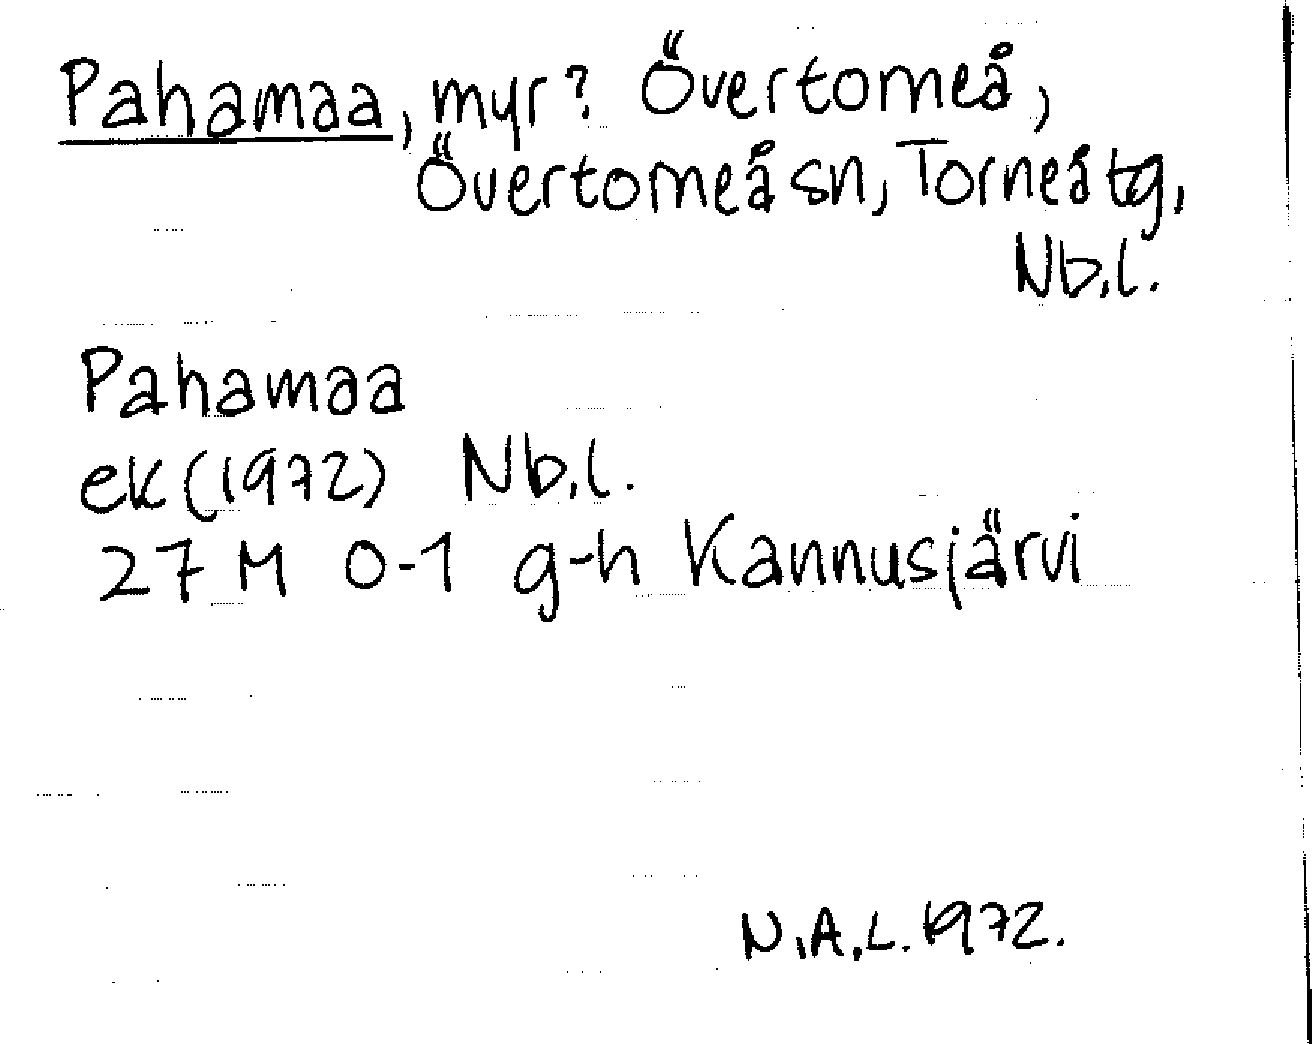 Pahamaa, myr? Övertorneå,
Övertorneå sn, Torneå tg,
Nb.l.
Pahamaa
ek (1972) Nb.l.
27 M 0-1 g-h Kannusjärvi
N.A.L. 1972.